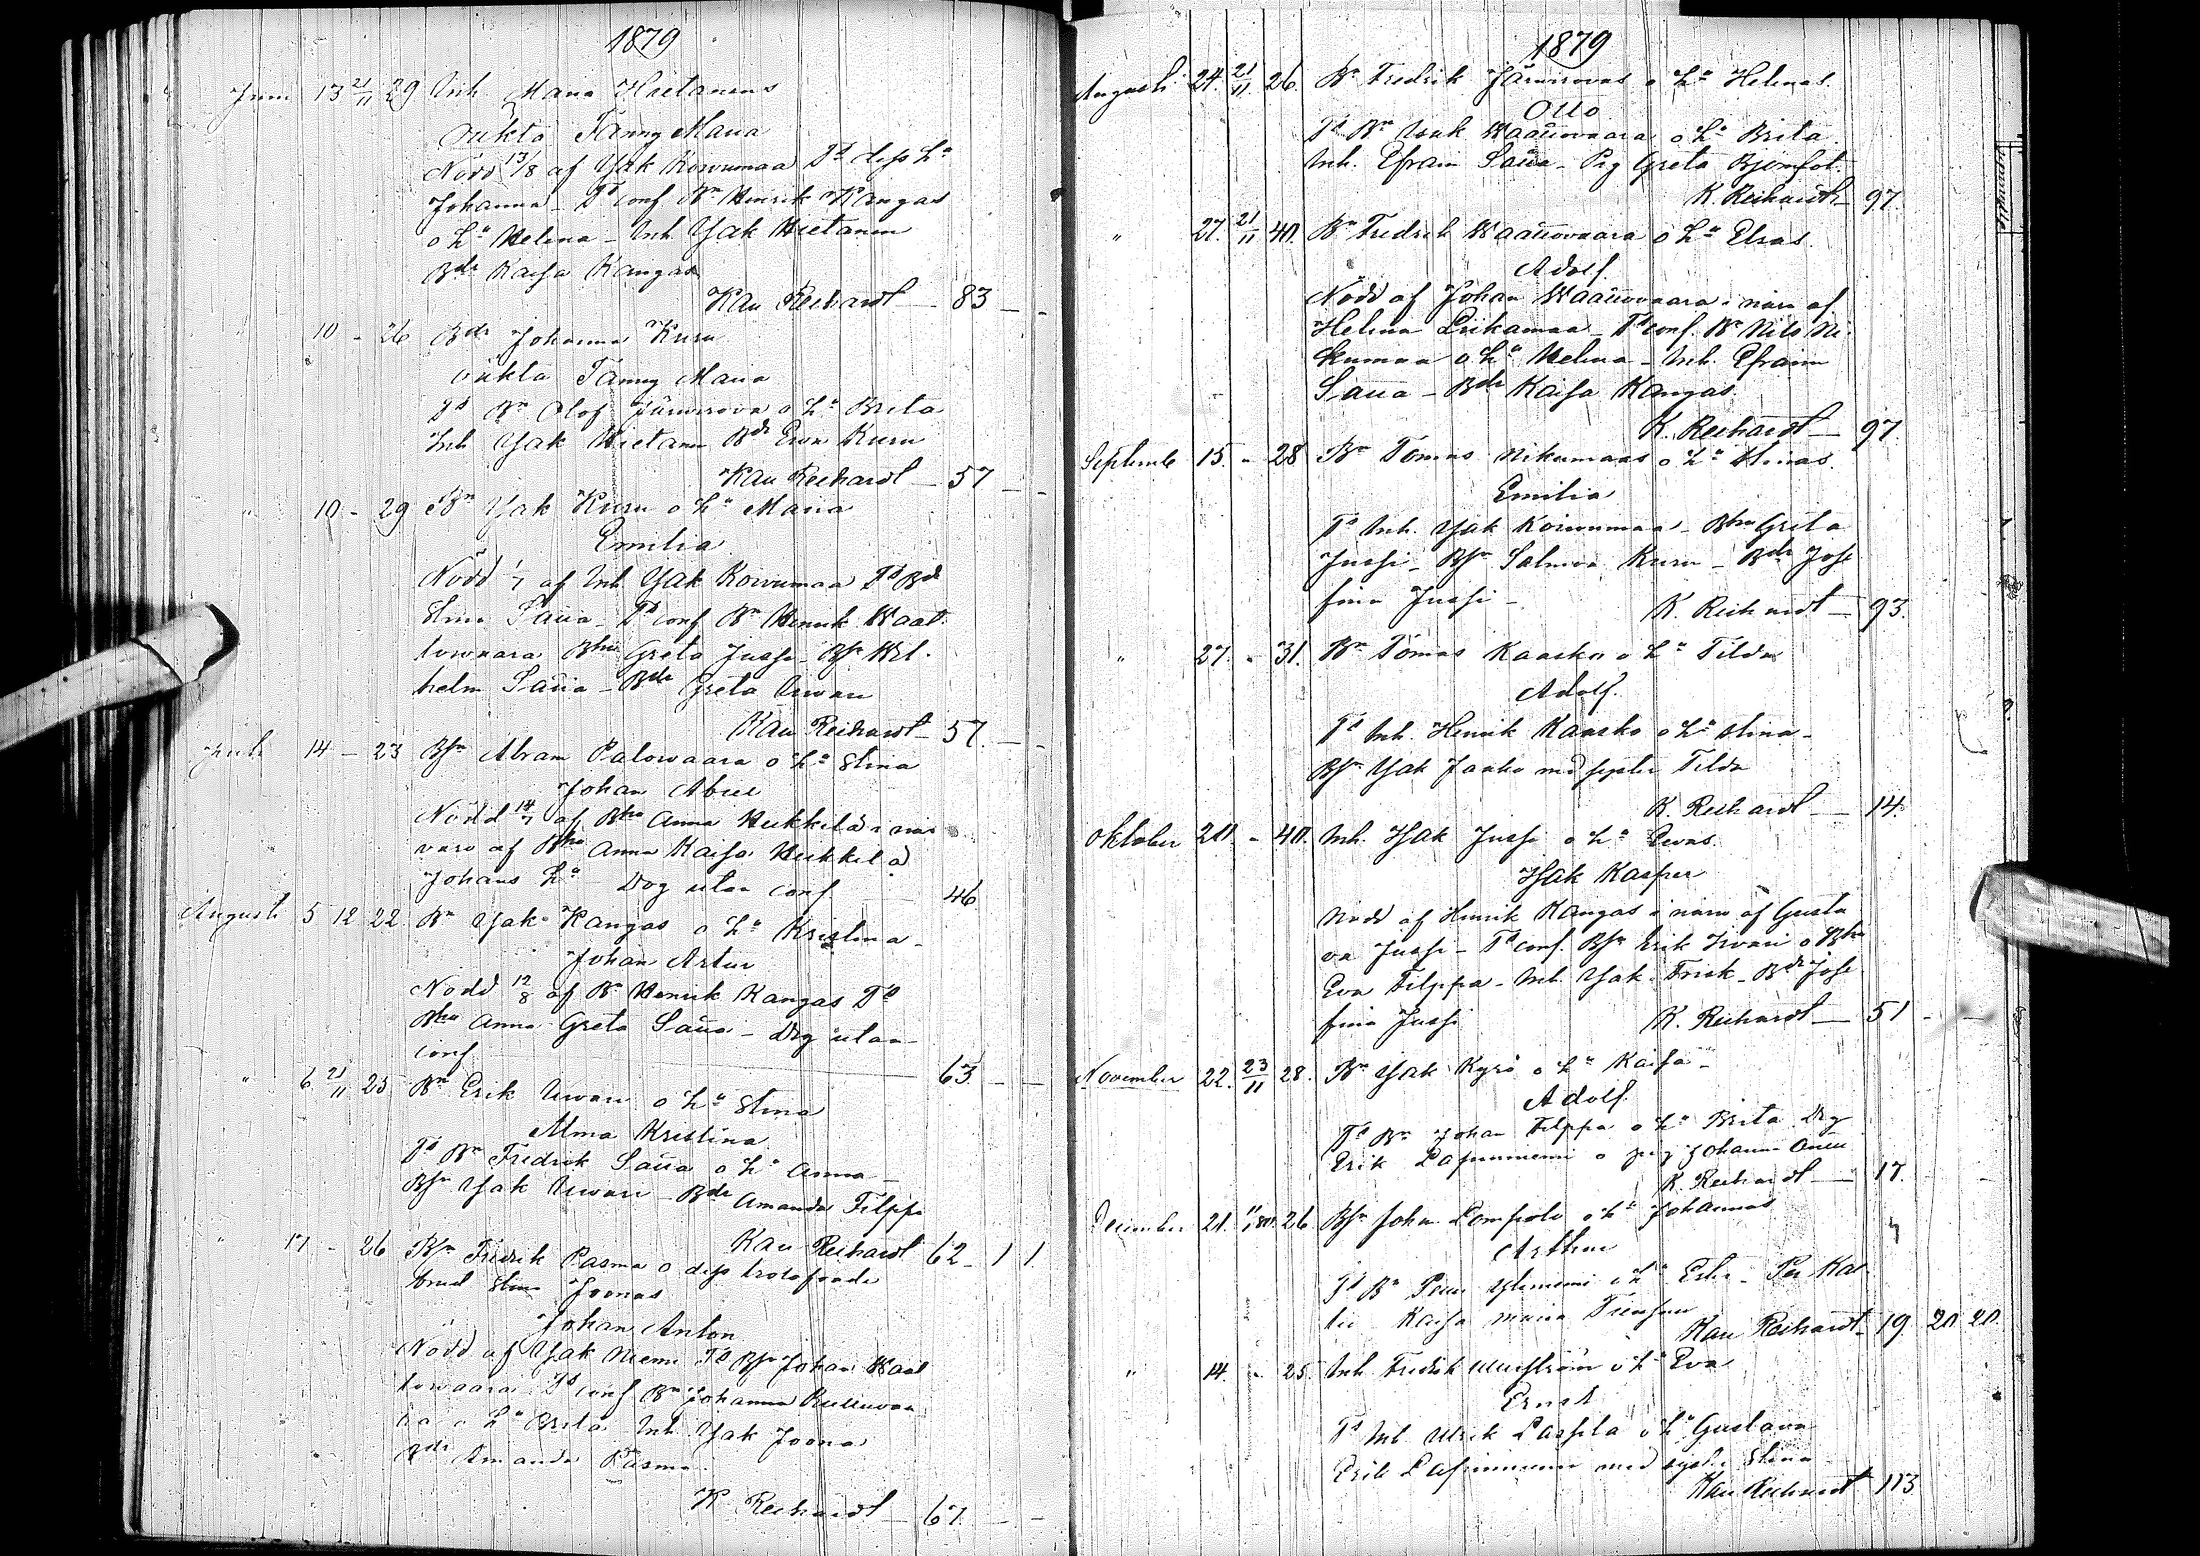 1879
Juni 13 21/11 29 Inh Maria Hietanens
oäkta Fanny Maria
Nödd 13/8 af Isak Koivumaa Ts dess Ha
Johanna - Ts conf Bn Henrik Kangas
o Ha Helena - Inh. Isak Hietanen
Bdr Kaisa Kangas
Kau Reihardt - 83 - -
" 10 - 26 Bdr Johanna Kuru
oäkta Fanny Maria
Ts Bn Olof Järvirova o Ha Brita
Inh Isak Hietanen Bdr Eva Kuru
Kau Reihardt - 57 - -
" 10 - 29 Bn Isak Kuru o Ha Maria
Emilia
Nödd 1/7 af Inh Isak Koivumaa Ts Bdr
Stina Saua - Ts conf Bn Henrik Waat-
towaara Bhu Greta Jussi - Bsn Wil-
helm Saua - Bdr Greta
Kau Reihardt - 57 - -
Juli 14 - 23 Bsn Abram Palowaara o Ha Stina
Johan Abiel
Nödd 14/7 af Bhu Anna Heikkilä i när
varo af Bhu Anna Kaisa Heikkilä
Johans Ha Dog utan conf 46
Augusti 5 12 22 Bn Isak Kangas o Ha Kristina -
Johan Artur
Nödd 12/8 af Bn Henrik Kangas Ts
Bhu Anna Greta Saua - Dog utan
conf 63 - -
" 6 21/11 25 Bn Erik o Ha Stina
Alma Kristina
Ts Bn Fredrik Saua o Ha Anna -
Bsn Isak - Bdr Amanda Filppa
Kau Reihardt 62 - 1 1
" 17 - 26 Bsn Fredrik Pasma o dess trolofvade
brud Stina Joonas
Johan Anton
Nödd af Isak Niemi Ts Bsn Johan Waat
towaara Ts conf Bn Johanna
o Ha Brita Inh Isak Joona
Bdr Amanda Pasma
K Reihardt - 67 - -
1879
Augusti 24. 21/11 26. Bn Fredrik Järvirovas o Ha Helenas.
Otto
Ts Bn Isak Waattovaara o Ha Brita
Inh. Efraim Saua - Pig Greta Björnfot.
K Reihardt - 97.
" 27. 21/11 40. Bn Fredrik Waattovaara o Ha Elsas.
Adolf.
Nödd af Johan Waattovaara i närv af
Helena Liikamaa - Ts conf. Bn Nils Ni-
kumaa o Ha Helena - Inh. Efraim
Saua - Bdr Kaisa Kangas.
K. Reihardt - 97.
Septembe 15. - 28 Bn Tomas Nikumaas o Ha Stinas.
Emilia
Ts Inh. Isak Koivumaa - Bhu Greta
Jussi - Bsn Salmon Kuru - Bdr Jose
fina Jussi -
K. Reihardt - 93.
" 27. - 31. Bn Tomas Kaarko o Ha Tilda
Adolf.
Ts Inh. Henrik Kaarko o Ha Stina -
Bsn Isak Jaako med syster Tilda
K. Reihardt - 14.
Oktober 20. - 40. Inh. Isak Jussi o Ha Evas.
Isak Kasper
Nödd af Henrik Kangas i närv af Gusta
va Jussi - Ts conf. Bsn Erik o Bhu
Eva Filppa - Inh. Isak Frisk - Bdr Jose
fina Jussi
K. Reihardt - 51 - -
November 22. 23/11 28. Bn Isak Kyrö o Ha Kaisa -
Adolf.
Ts Bn Johan Filppa o Ha Brita Drg
Erik Lapinniemi o pig Johanna
K. Reihardt - 17.
December 21. 26. Bsn Johan Lompolo o Ha Johannas
Arthur
Ts Bn Yliniemi o Ha - Per
Kaisa Maria
Kau Reihardt - 19 20 20
" 14. - 25. Inh. Fredrik o Ha Eva
Ernst
Ts Inh Ulrik Lassila o Ha Gustava
Erik Lapinniemi med syst. Stina
Kau Reihardt 113